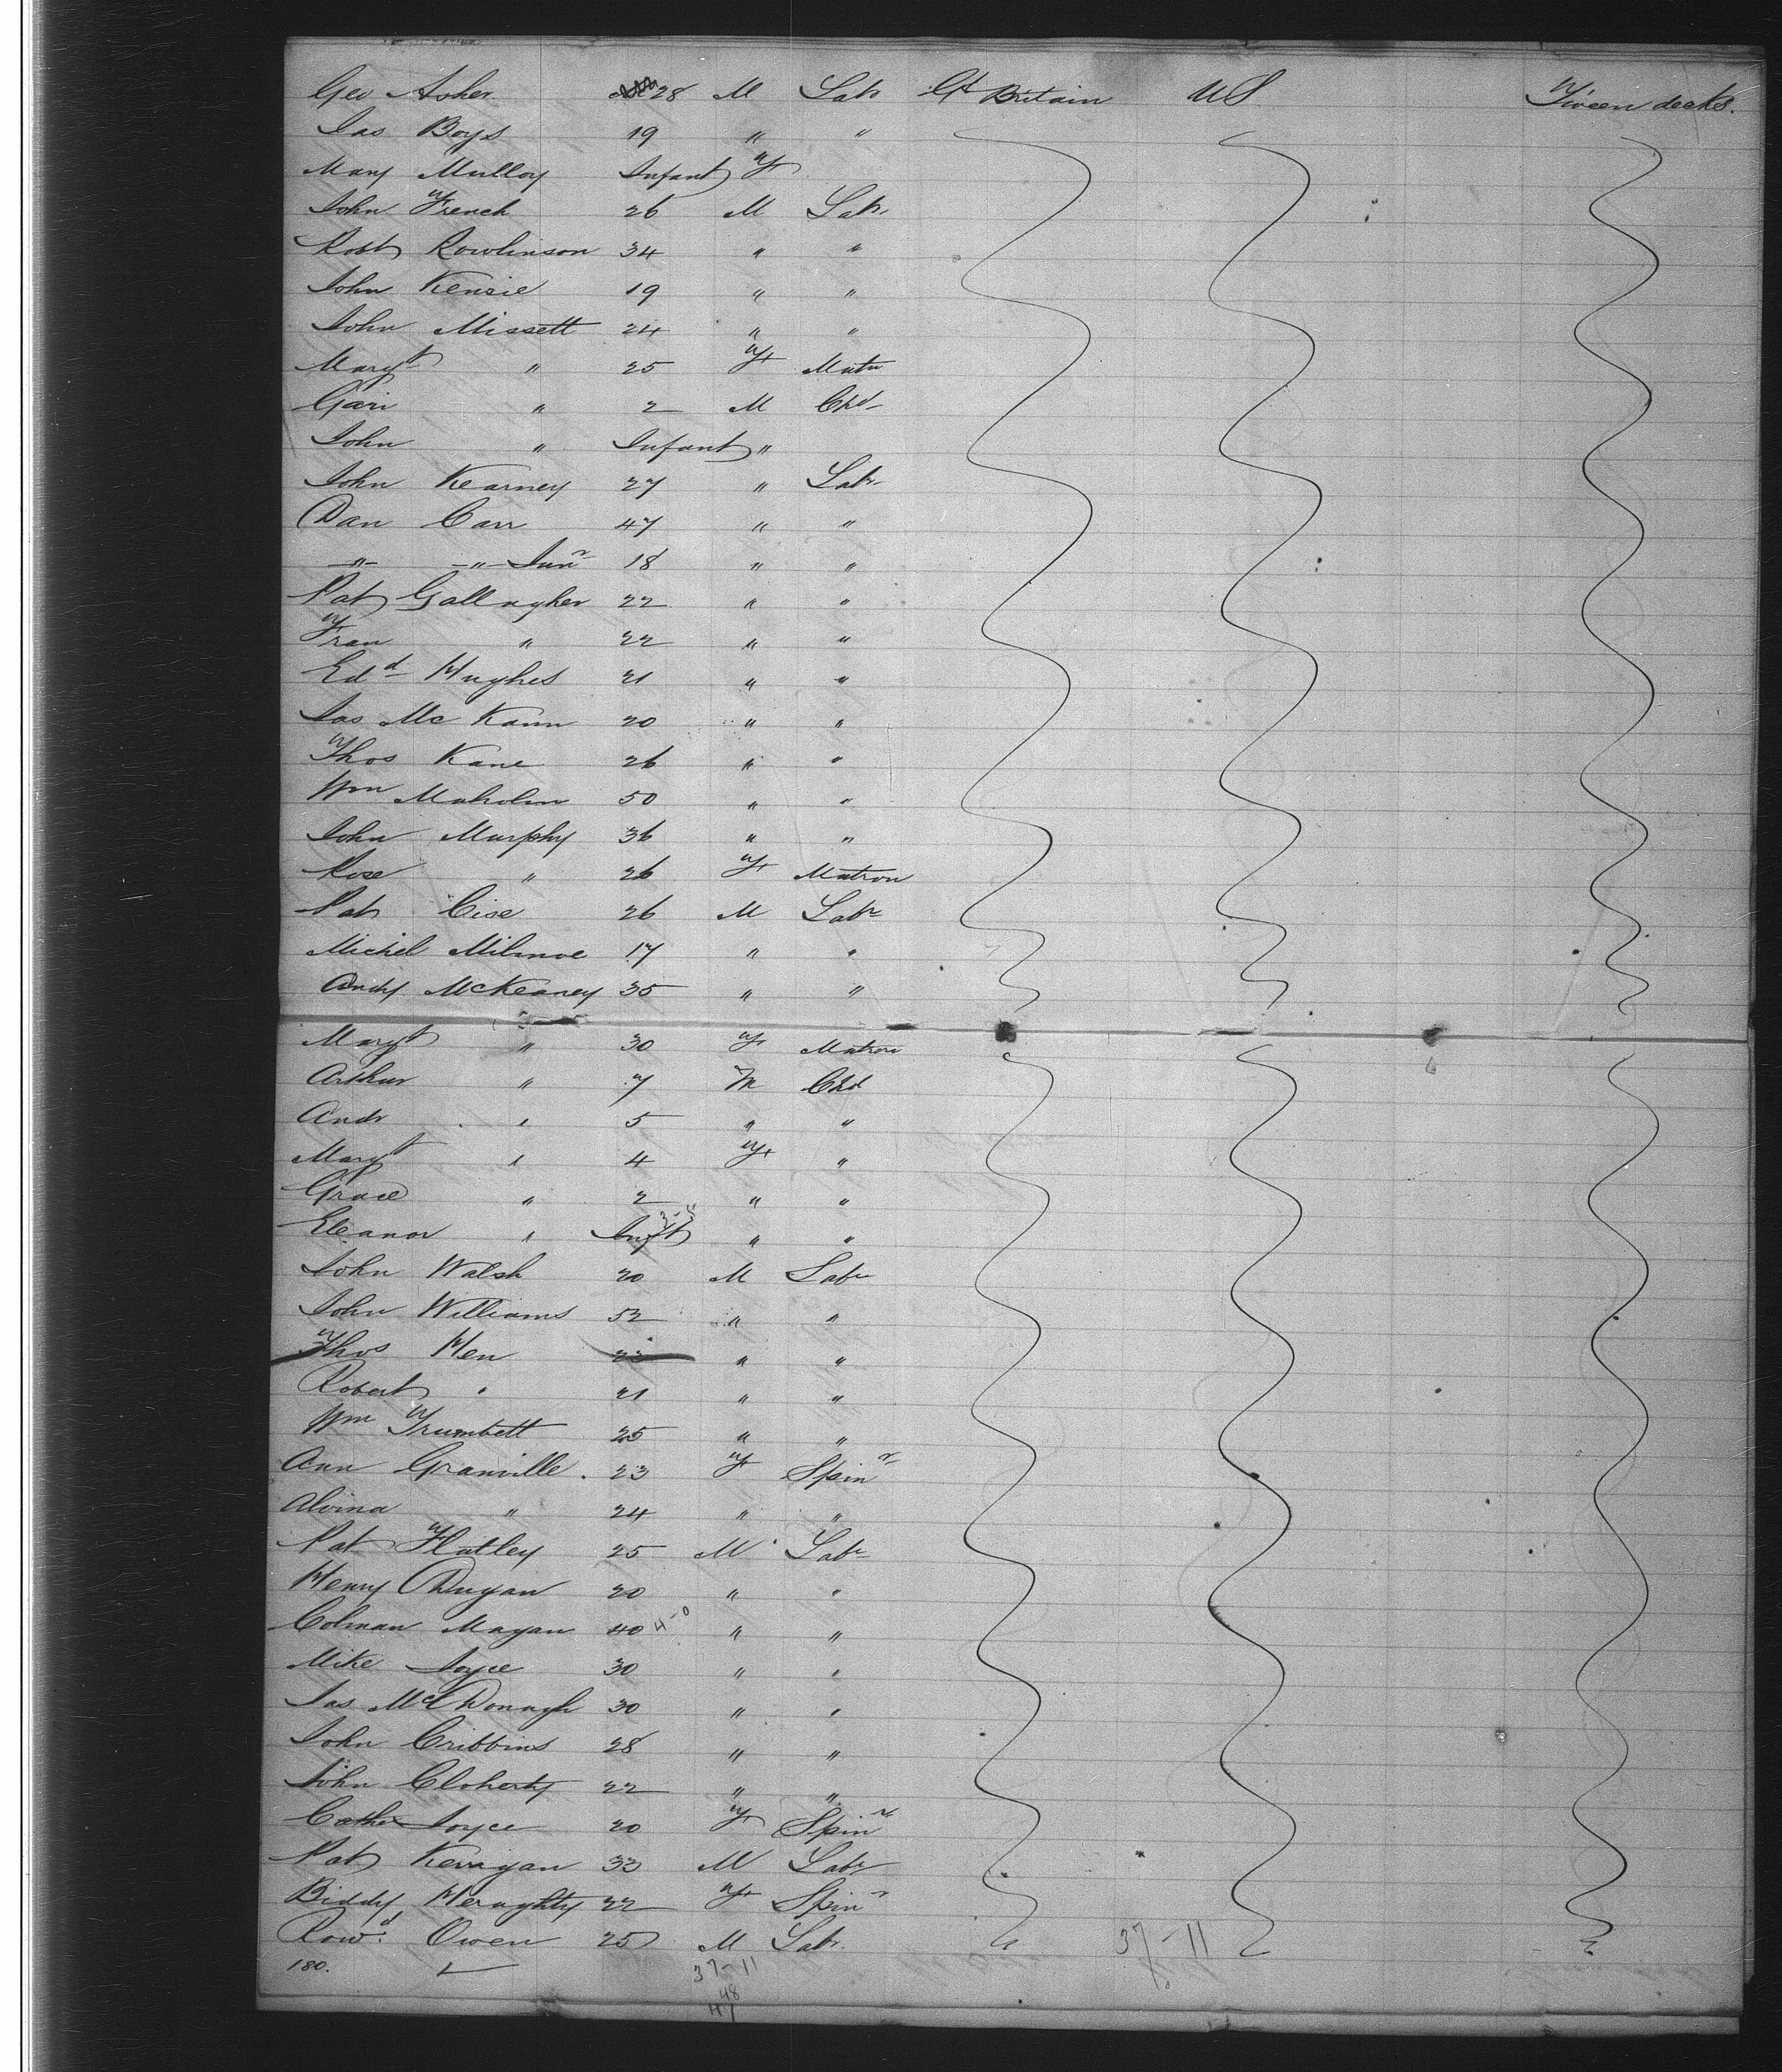 Geo Asher 28 M Labr Gt Britain US Tween decks.
Jas Boys 19 " "
Mary Mulloy Infant F
John French 26 M Labr
Robt Rowlinson 34 " "
John Kensie 19 " "
John Missett 24 " "
Margt " 25 F Matn
" 2 M Chd
John " Infant "
John Kearney 27 " Labr
Dan Carr 47 " "
-"- -"- Junr 18 " "
Pat Gallagher 22 " "
Fran " 22 " "
Edd Hughes 21 " "
Jas McKann 20 " "
Thos Kane 26 " "
Wm Maholm 50 " "
John Murphy 36 " "
Rose " 26 F Matron
Pat Cise 26 M Labr
Michel Milmoe 17 " "
Andy McKeaney 35 " "
Margt " 30 F Matron
Arthur " 7 M Chd
Andr " 5 " "
Margt " 4 F "
Grace " 2 " "
Eleanor " Inft " "
John Walsh 20 M Labr
John Williams 52 " "
Thos Hen 22 " "
Robert " 21 " "
Wm Trumbett 25 " "
Ann Granville 23 F Spinr
Alvina " 24 " "
Pat Flatley 25 M Labr
Henry Dugan 20 " "
Colman Magan 40 4-0 " "
Mike Joyce 30 " "
Jas McDonagh 30 " "
John Cribbins 28 " "
John Cloherty 22 " "
Cathe Joyce 20 F Spinr
Pat Kerrigan 33 M Labr
Biddy Heraghty 22 F Spinr
Rowd. Owen 25 M Labr. 37-11
180. 37-11
48
47